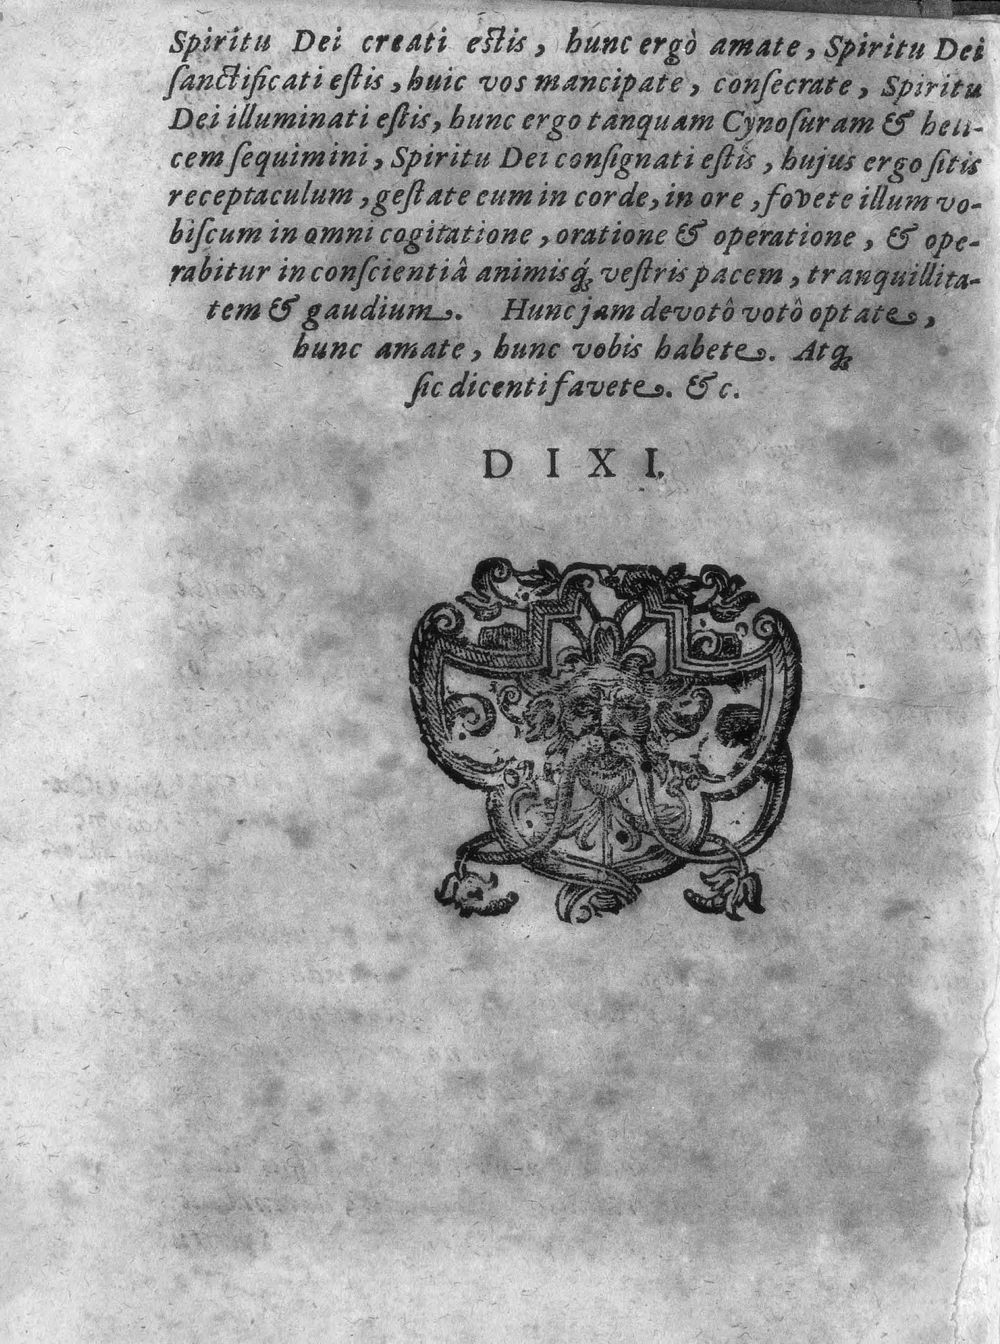 Spiritu Dei creati estis, hunc ergò amate, Spiritu Dei
ſanctificati eſtis, huic vos mancipate, conſecrate, Spiritu
Dei illuminati eſtis, hunc ergo tanquam Cynoſuram & heli-
cem ſequimini, Spiritu Dei conſignati eſtis, hujus ergo ſitis
receptaculum, geſtate eum in corde, in ore, fovete illum vo-
biſcum in omni cogitatione, oratione & operatione, & ope-
rabitur in conſcientiâ animisq́; veſtris pacem, tranquillita-
tem & gaudium. Hunc jam devotô votô optate,
hunc amate, hunc vobis habete. Atq;
ſic dicenti favete. &c.
DIXI.